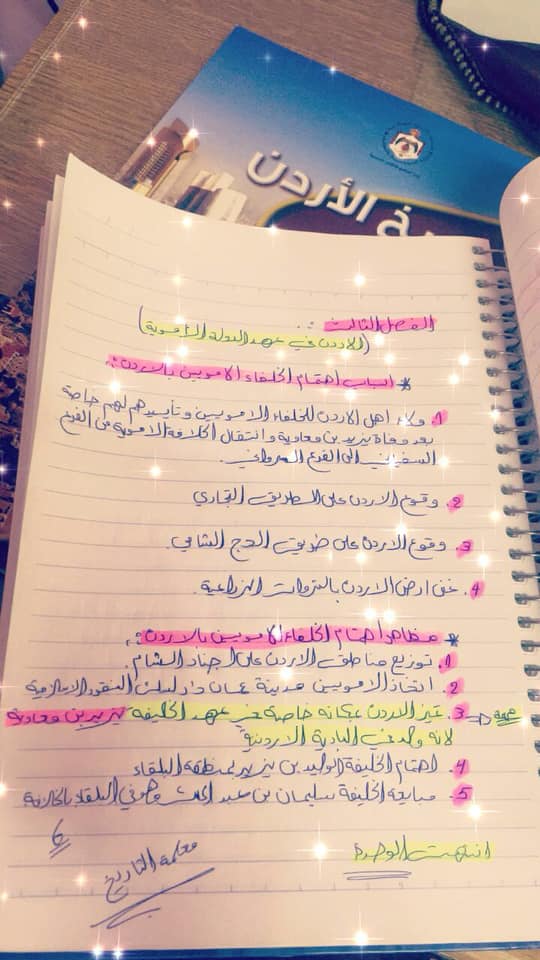 خ الأردن
الفصل الثالث :
(الاردن في عهد الدولة الاموية)
* اسباب اهتمام الخلفاء الامويين بالاردن :
1. ولاء اهل الاردن للخلفاء الامويين وتأييدهم لهم خاصة
بعد وفاة يزيد بن معاوية وانتقال الخلافة الاموية من الفرع
السفياني الى الفرع المرواني.
2. وقوع الاردن على الطريق التجاري
3. وقوع الاردن على طريق الحج الشامي.
4. غنى ارض الاردن بالثروات الزراعية.
* مظاهر اهتمام الخلفاء الامويين بالاردن :
1. توزيع مناطق الاردن على اجناد الشام.
2. اتخاذ الامويين مدينة عمان دار لسك النقود الاسلامية
مهمة 3. تميز الاردن بمكانه خاصة في عهد الخليفة يزيد بن معاوية
لانه ولد في البادية الاردنية
4. اهتمام الخليفة الوليد بن يزيد لمنطقة البلقاء
5. مبايعة الخليفة سليمان بن عبد الملك وهو في البلقاء بالخلافة
انتهت الوحدة
معلمة التاريخ